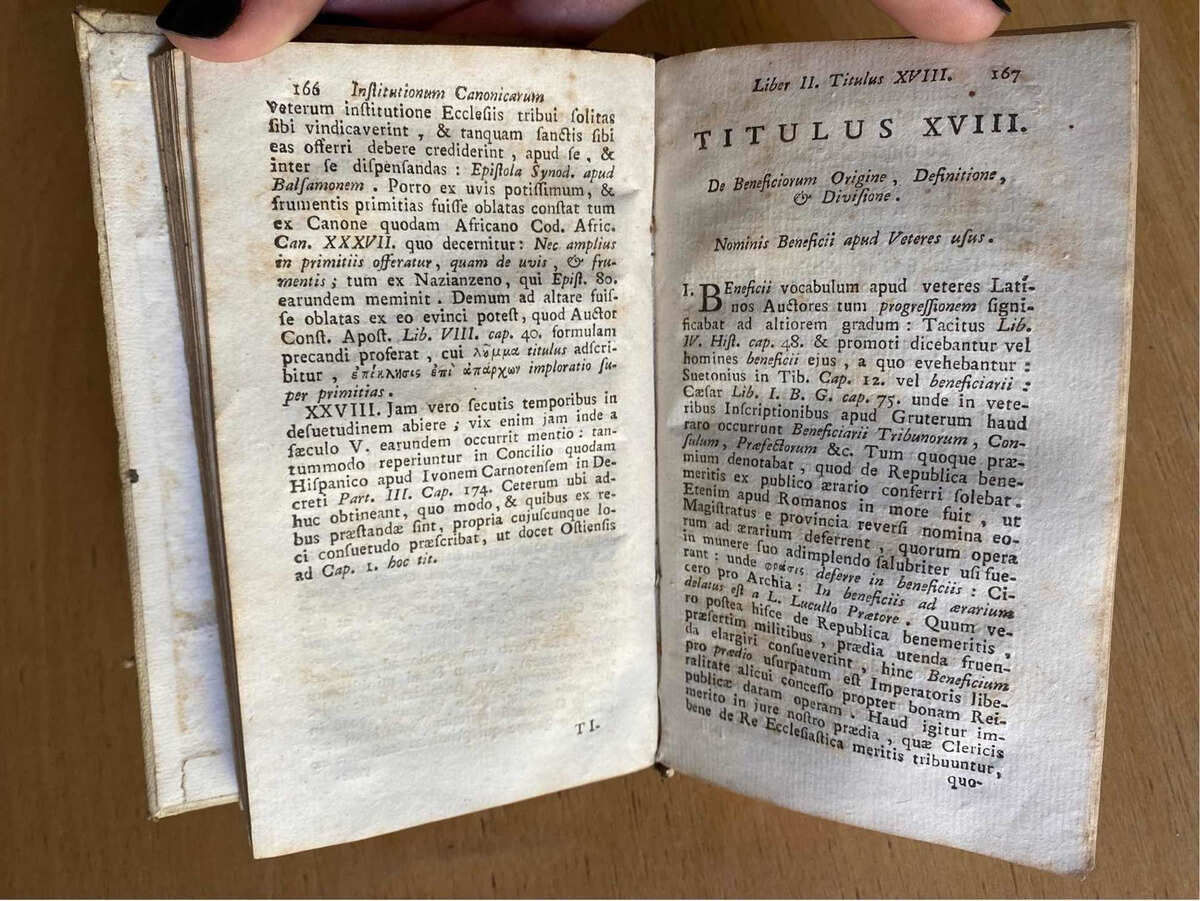 166 Inſtitutionum Canonicarum
Veterum inſtitutione Eccleſiis tribui ſolitas
ſibi vindicaverint , & tanquam ſanctis ſibi
eas offerri debere crediderint , apud ſe , &
inter ſe diſpenſandas : Epiſtola Synod. apud
Balſamonem . Porro ex uvis potiſſimum, &
frumentis primitias fuiſſe oblatas conſtat tum
ex Canone quodam Africano Cod. Afric.
Can. XXXVII. quo decernitur: Nec amplius
in primitiis offeratur, quam de uvis , & fru-
mentis ; tum ex Nazianzeno, qui Epiſt. 80.
earundem meminit . Demum ad altare fuiſ-
ſe oblatas ex eo evinci poteſt, quod Auctor
Conſt. Apoſt. Lib. VIII. cap. 40. formulam
precandi proferat , cui λῆμμα titulus adſcri-
bitur , ἐπίκλησις ἐπὶ ἀπάρχων imploratio ſu-
per primitias .
XXVIII. Jam vero ſecutis temporibus in
deſuetudinem abiere ; vix enim jam inde a
ſæculo V. earundem occurrit mentio : tan-
tummodo reperiuntur in Concilio quodam
Hiſpanico apud Ivonem Carnotenſem in De-
creti Part. III. Cap. 174. Ceterum ubi ad-
huc obtineant, quo modo, & quibus ex re-
bus præſtandæ ſint, propria cujuſcunque lo-
ci conſuetudo præſcribat, ut docet Oſtienſis
ad Cap. 1. hoc tit.
TI-
Liber II. Titulus XVIII. 167
TITULUS XVIII.
De Beneficiorum Origine , Definitione,
& Diviſione .
Nominis Beneficii apud Veteres uſus .
I. BEneficii vocabulum apud veteres Lati-
nos Auctores tum progreſſionem ſigni-
ficabat ad altiorem gradum : Tacitus Lib.
IV. Hiſt. cap. 48. & promoti dicebantur vel
homines beneficii ejus , a quo evehebantur :
Suetonius in Tib. Cap. 12. vel beneficiarii :
Cæſar Lib. I. B. G. cap. 75. unde in vete-
ribus Inſcriptionibus apud Gruterum haud
raro occurrunt Beneficiarii Tribunorum , Con-
ſulum, Præfectorum &c. Tum quoque præ-
mium denotabat , quod de Republica bene-
meritis ex publico ærario conferri ſolebat .
Etenim apud Romanos in more fuit , ut
Magiſtratus e provincia reverſi nomina eo-
rum ad ærarium deferrent , quorum opera
in munere ſuo adimplendo ſalubriter uſi fue-
rant : unde φράσις deferre in beneficiis : Ci-
cero pro Archia : In beneficiis ad ærarium
delatus eſt a L. Lucullo Prætore . Quum ve-
ro poſtea hiſce de Republica benemeritis ,
præſertim militibus , prædia utenda fruen-
da elargiri conſueverint , hinc Beneficium
pro prædio uſurpatum eſt Imperatoris libe-
ralitate alicui conceſſo propter bonam Rei-
publicæ datam operam . Haud igitur im-
merito in jure noſtro prædia , quæ Clericis
bene de Re Eccleſiaſtica meritis tribuuntur,
quo-